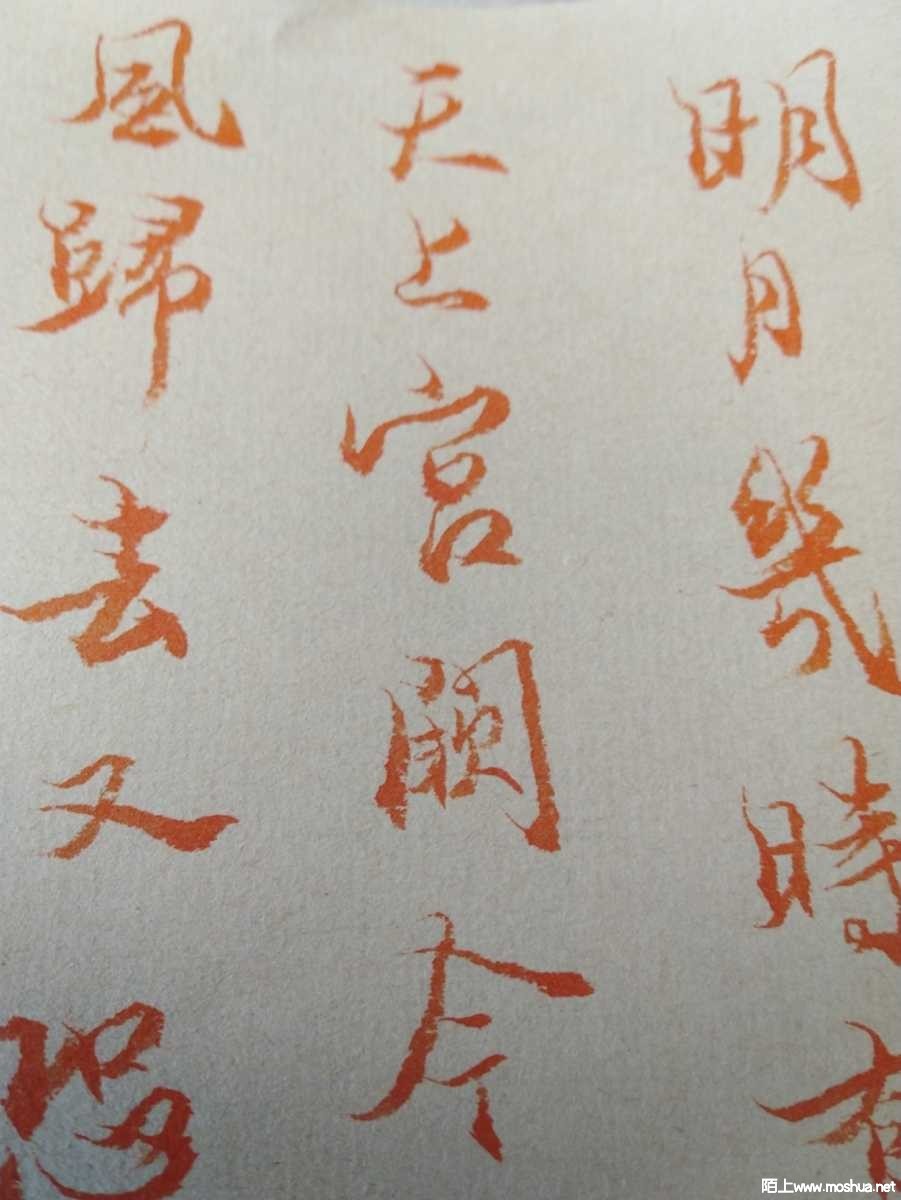 明月幾時有
天上宮闕今
風歸去又恐
陌上www.moshua.net